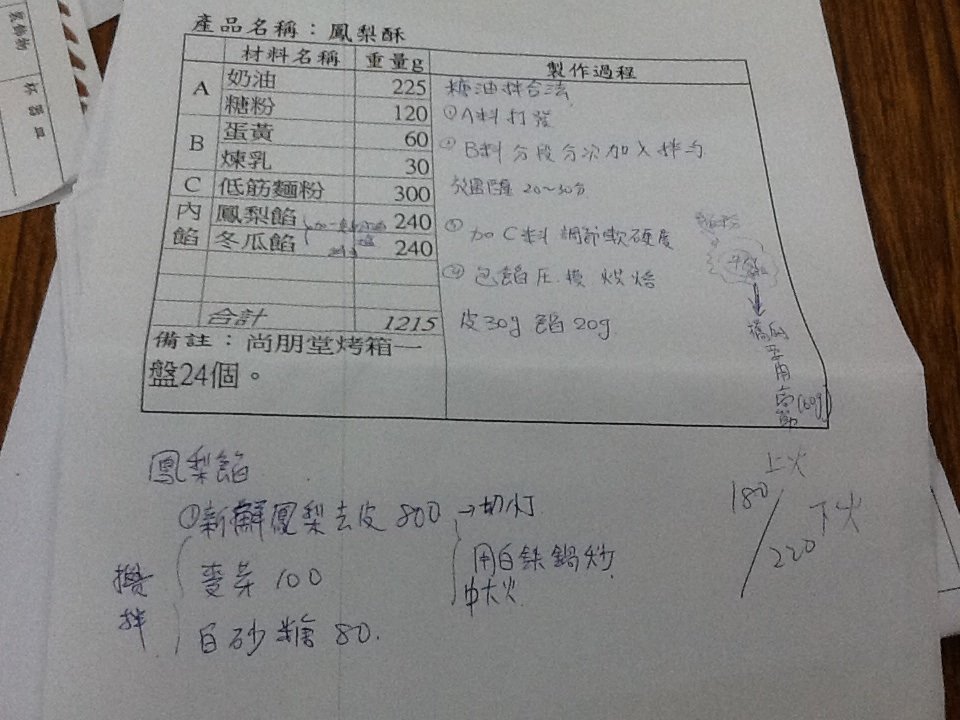 產品名稱：鳳梨酥
材料名稱 重量g 製作過程
A 奶油 225
糖粉 120
B 蛋黃 60
煉乳 30
C 低筋麵粉 300
內餡 鳳梨餡 240
冬瓜餡 240
合計 1215
備註：尚朋堂烤箱一
盤24個。
糖油拌合法
①A料打發
②B料分段分次加入拌勻
放置醒 20~30分
③加C料調節軟硬度
④包餡壓模烘焙
皮30g 餡20g
上火
180
下火
220
鳳梨餡
①新鮮鳳梨去皮 800 →切灯
麥芽 100
白砂糖 80.
攪拌
用白鉄鍋炒
中大火